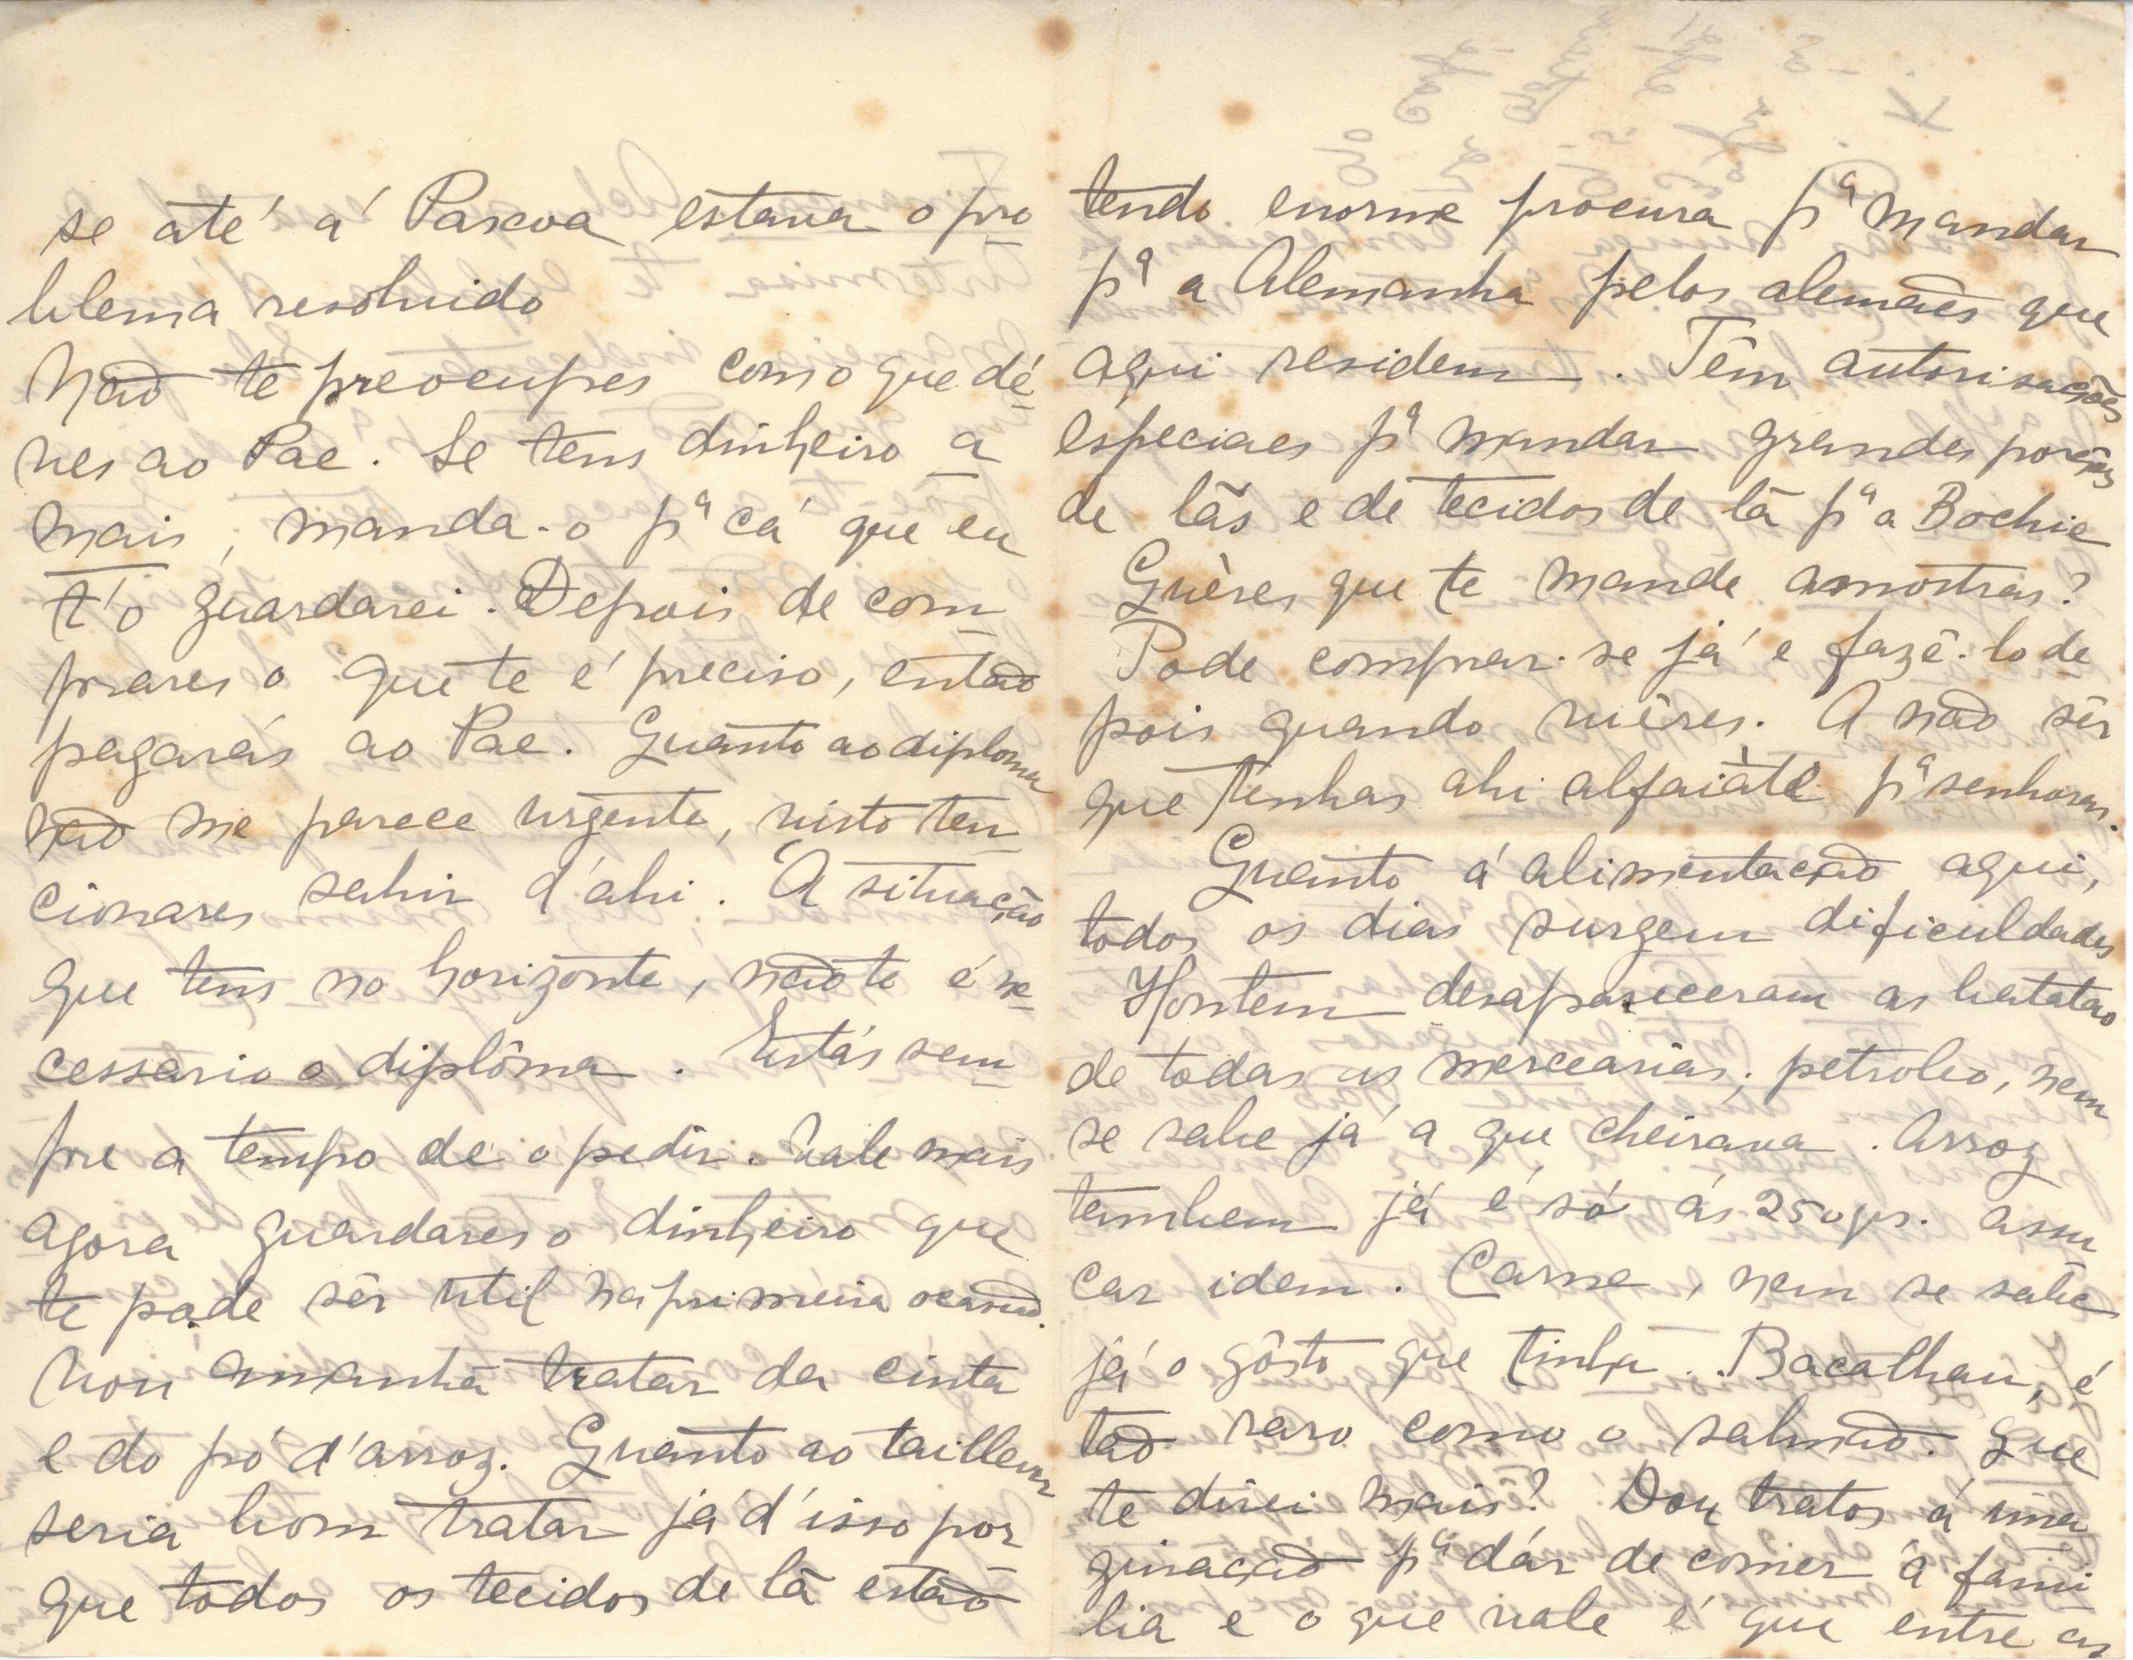 se até á Pascoa estava o pro
blema resolvido
Não te preocupes com o que dé
ves ao Pae. Se tens dinheiro a
mais, manda-o pª cá que eu
t'o guardarei. Depois de com
prares o que te é preciso, então
pagarás ao Pae. Quanto ao diploma
não me parece urgente, visto ten
cionares sahir d'ahi. A situação
que tens no horizonte, não te é ne
cessario o diplôma. Estás sem
pre a tempo de o pedir. Vale mais
agora guardares o dinheiro que
te pode sêr util na primeira ocasião.
Vou amanhã tratar da cinta
e do pó d'arroz. Quanto ao tailleur
seria bom tratar já d'isso por
que todos os tecidos de lã estão
tendo enorme procura pª mandar
pª a Alemanha pelos alemães que
aqui residem. Têm autorisações
especiaes pª mandar grandes porções
de lãs e de tecidos de lã pª a Bochie
Quères que te mande amostras?
Pode comprar-se já e fazê-lo de
pois quando viéres. A não sêr
que tenhas ahi alfaiate pª senhoras.
Quanto á alimentação aqui,
todos os dias surgem dificuldades
Hontem desapareceram as batatas
de todas as mercearias; petroleo, nem
se sabe já a que cheirava. Arroz
tambem já é só ás 250 grs. assu
car idem. Carne, nem se sabe
já o gôsto que tinha. Bacalhau, é
tão raro como o salmão. Que
te direi mais? Dou tratos á ima
ginação pª dár de comer á fami
lia e o que vale é que entre as